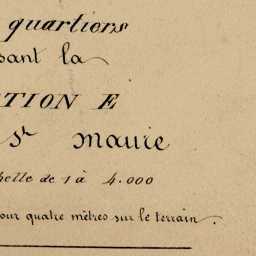 quartiers
sant la
TION E
St Maurie
helle de 1 à 4.000
our quatre mètres sur le terrain.